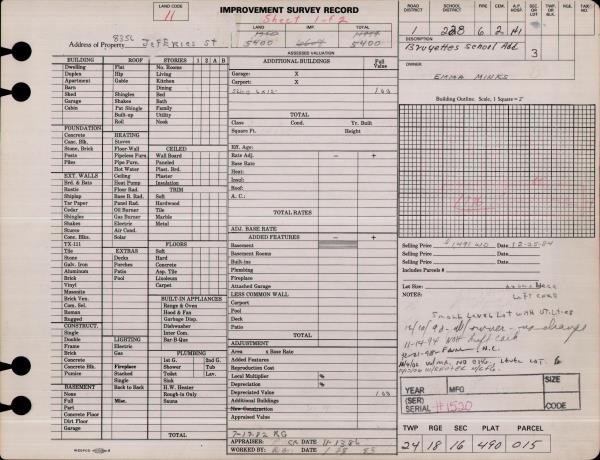 IMPROVEMENT SURVEY RECORD
LAND CODE
11
Sheet 1 of 2
LAND IMP. TOTAL
5400 5400
ASSESSED VALUATION
8356
Address of Property JEFFERIES ST
ROAD DISTRICT SCHOOL DISTRICT FIRE CEM. A.P. HOSP. SEC. OR LOT TWP. OR BLK. RGE. TAX NO.
1 228 6 2 H1
3
DESCRIPTION
Bruyettes School Add
OWNER
EMMA MINKS
BUILDING ROOF STORIES 1 2 A B
Dwelling Flat No. Rooms
Duplex Hip Living
Apartment Gable Kitchen
Barn Dining
Shed Shingles Bed
Garage Shakes Bath
Cabin Pat Shingle Family
Built-up Utility
Roll Nook
FOUNDATION
Concrete HEATING
Conc. Blk. Stoves CEILED
Stone, Brick Floor-Wall Wall Board
Posts Pipeless Furn. Paneled
Piles Pipe Furn. Plast. Brd.
Hot Water Plaster
EXT. WALLS Ceiling Insulation
Brd. & Bats Heat Pump TRIM
Rustic Floor Rad. Soft
Shiplap Base B. Rad. Hard
Tar Paper Panel Rad. Hardwood
Cedar Oil Burner Tile
Shingles Gas Burner Marble
Shakes Electric Metal
Stucco Air Cond.
Conc. Blks. Solar
TX-111 FLOORS
Tile EXTRAS Soft
Stone Decks Hard
Galv. Iron Porches Concrete
Aluminum Patio Asp. Tile
Brick Pool Linoleum
Vinyl Carpet
Masonite
Brick Ven. BUILT-IN APPLIANCES
Cem. Bel. Range & Oven
Roman Hood & Fan
Rugged Garbage Disp.
CONSTRUCT. Dishwasher
Single Inter Com.
Double LIGHTING Bar-B-Que
Brick Electric
Concrete Gas PLUMBING
Concrete Blk. Fireplace 1st G. 2nd G.
Pumice Stacked Shower Tub
Single Toilet Lav.
BASEMENT Back to Back Sink
None H.W. Heater
Full Misc. Rough-in Only
Part Sauna
Concrete Floor
Dirt Floor
Garage TOTAL
ADDITIONAL BUILDINGS Full Value
Garage: X
Carport: X
TOTAL
Class Cond. Yr. Built
Square Ft. Height
Eff. Age:
Rate Adj. − +
Base Rate
Heat:
Insul:
Roof:
A. C.:
TOTAL RATES
ADJ. BASE RATE
ADDED FEATURES − +
Basement
Basement Rooms
Built-ins
Plumbing
Fireplace
Attached Garage
LESS COMMON WALL
Carport
Pool
Deck
Patio
TOTAL
ADJUSTMENT
Area x Base Rate
Added Features
Reproduction Cost
Local Multiplier %
Depreciation %
Depreciated Value
Additional Buildings
New Construction
Appraised Value
7-13-82 RG
APPRAISER:
WORKED BY:
Building Outline: Scale, 1 Square = 2'
Selling Price $ 1491 WD Date 12-25-84
Selling Price Date
Includes Parcels #
Lot Size:
NOTES:
Small Level Lot with Utilities
YEAR MFG SIZE
(SER)
SERIAL #1520 CODE
TWP RGE SEC PLAT PARCEL
24 18 16 490 015